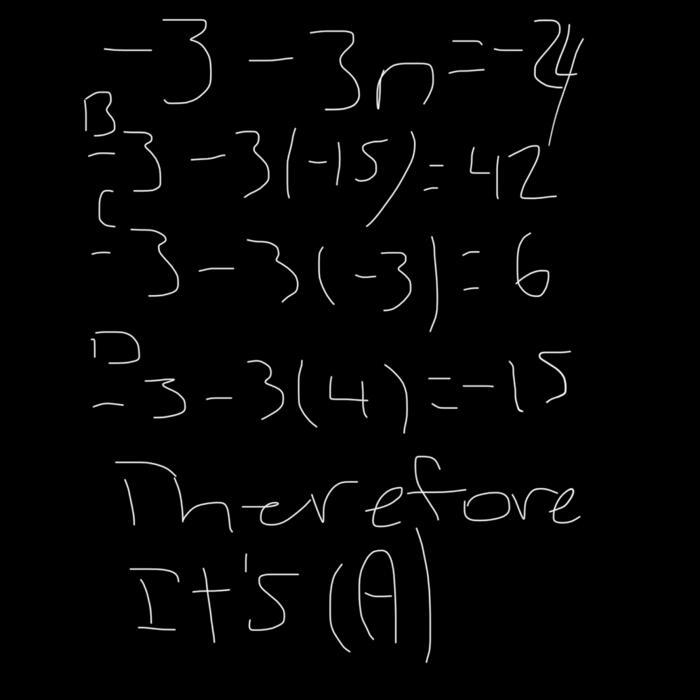 -3 - 3n = -24
B
-3 - 3(-15) = 42
C
-3 - 3(-3) = 6
D
-3 - 3(4) = -15
Therefore
It's (A)